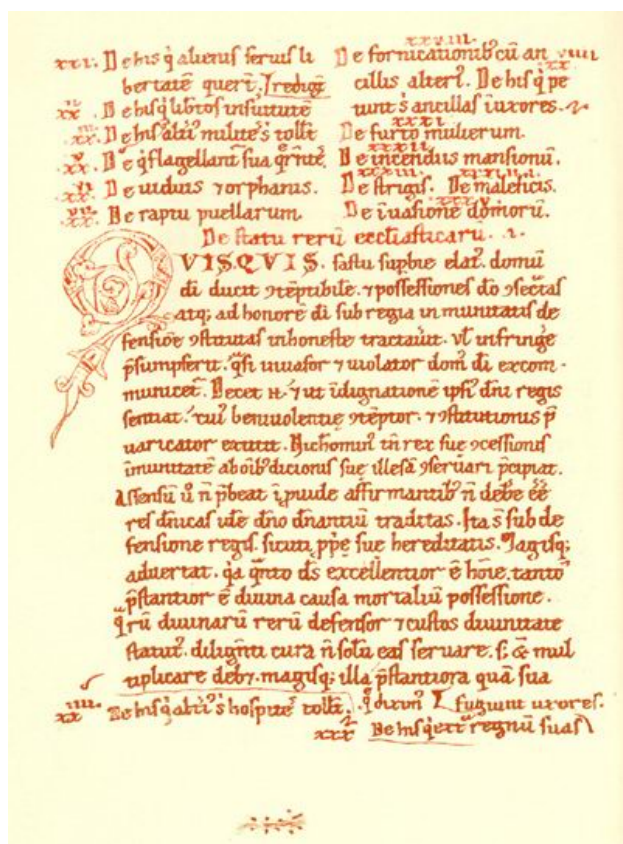 xxi. De his q̇ alienis servis li
bertatē quert. / rediget
xx. De hisq̇ libros in suitutē
xx. De his q̇ alti milites tollt
xx. De q̇ flagellant sua q̄rntē.
xx. De viduis ⁊ orphanis.
xx. De raptu puellarum.
xxviii.
De fornicationib; cū an viiii
cillis alteri. De his q̇ pe xx
tunt s̄ ancillas i uxores.
xxxi
De furto mulierum.
xxxii
De incendiis mansionū.
xxxiii. xxxiiii.
De strigis. De maleficis.
xxxv
De ivasione domorū.
De statu rerū eccl̄iasticarū. .1.
QVISQVIS. fastu supbie elat. domū
di ducit ɔtēptibile. ⁊ possessiones dō ɔsectas
atq; ad honorē di sub regia inmunitatis de
fensiōe ɔstitutas inhoneste tractavit. vl̄ infringe
p̄sumpserit. q̄si invasor ⁊ violator dom̄ di excom-
municet. Decet n̄. ⁊ ut īdignationē ipsi dn̄i regis
sentiat. cui benivolentie ɔtēptor. ⁊ ɔstitutionis p̄
varicator extitit. Nichomin̄ tn̄ rex sue ɔcessionis
īmunitatē ab oib; dicionis sue illesā ɔservari p̄cipiat.
Assensū ū n̄ p̄beat īpvide affirmantib; n̄ debē ēē
res dn̄icas id̄e dn̄o dn̄antiū traditas. Ita s̄ sub de
fensione regis. sicuti p̄pe sue hereditatis. Magisq;
advertat. q̇a q̄nto d̄s excellentior ē hōie. tantō
p̄stantior ē divina causa mortaliū possessione.
q̄rū divinarū rerū defensor ⁊ custos divinitate
statut̄. dilign̄ti cura n̄ solū eas servare. s; & mul
tiplicare deb⁊. magisq; illa p̄stantiora quā sua
xx De his q̇ alti s̄ hospitē tollt. q̇ dixim̄ fugiunt uxores.
xxx De his q̇ ext̄ regnū suas